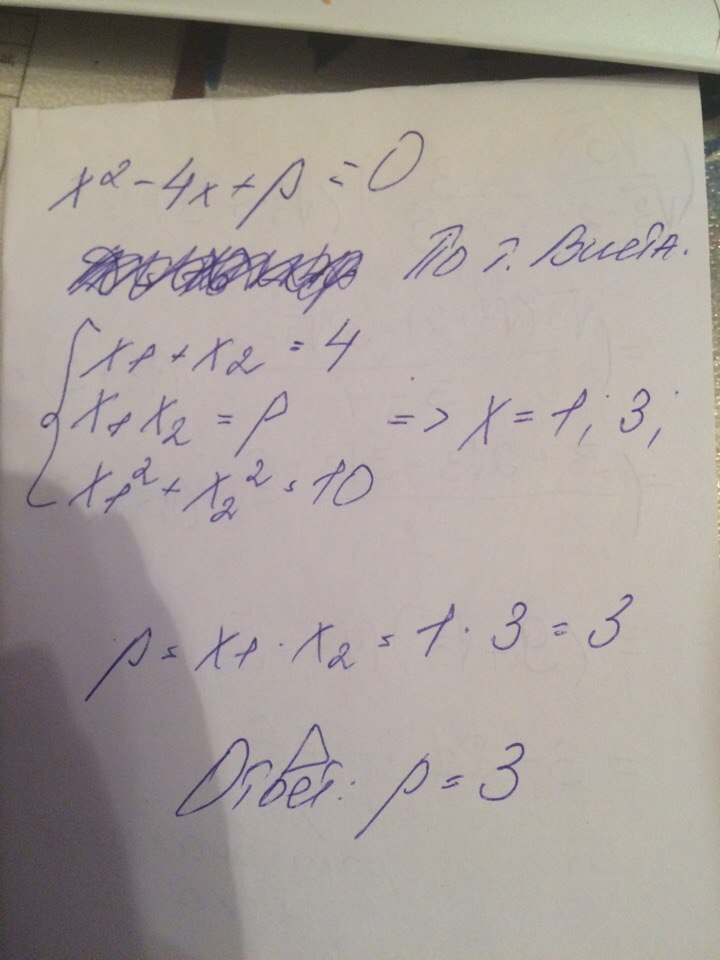 x² - 4x + p = 0
По т. Виета.
x₁ + x₂ = 4
x₁ x₂ = p => x = 1; 3;
x₁² + x₂² = 10
p = x₁ · x₂ = 1 · 3 = 3
Ответ: p = 3